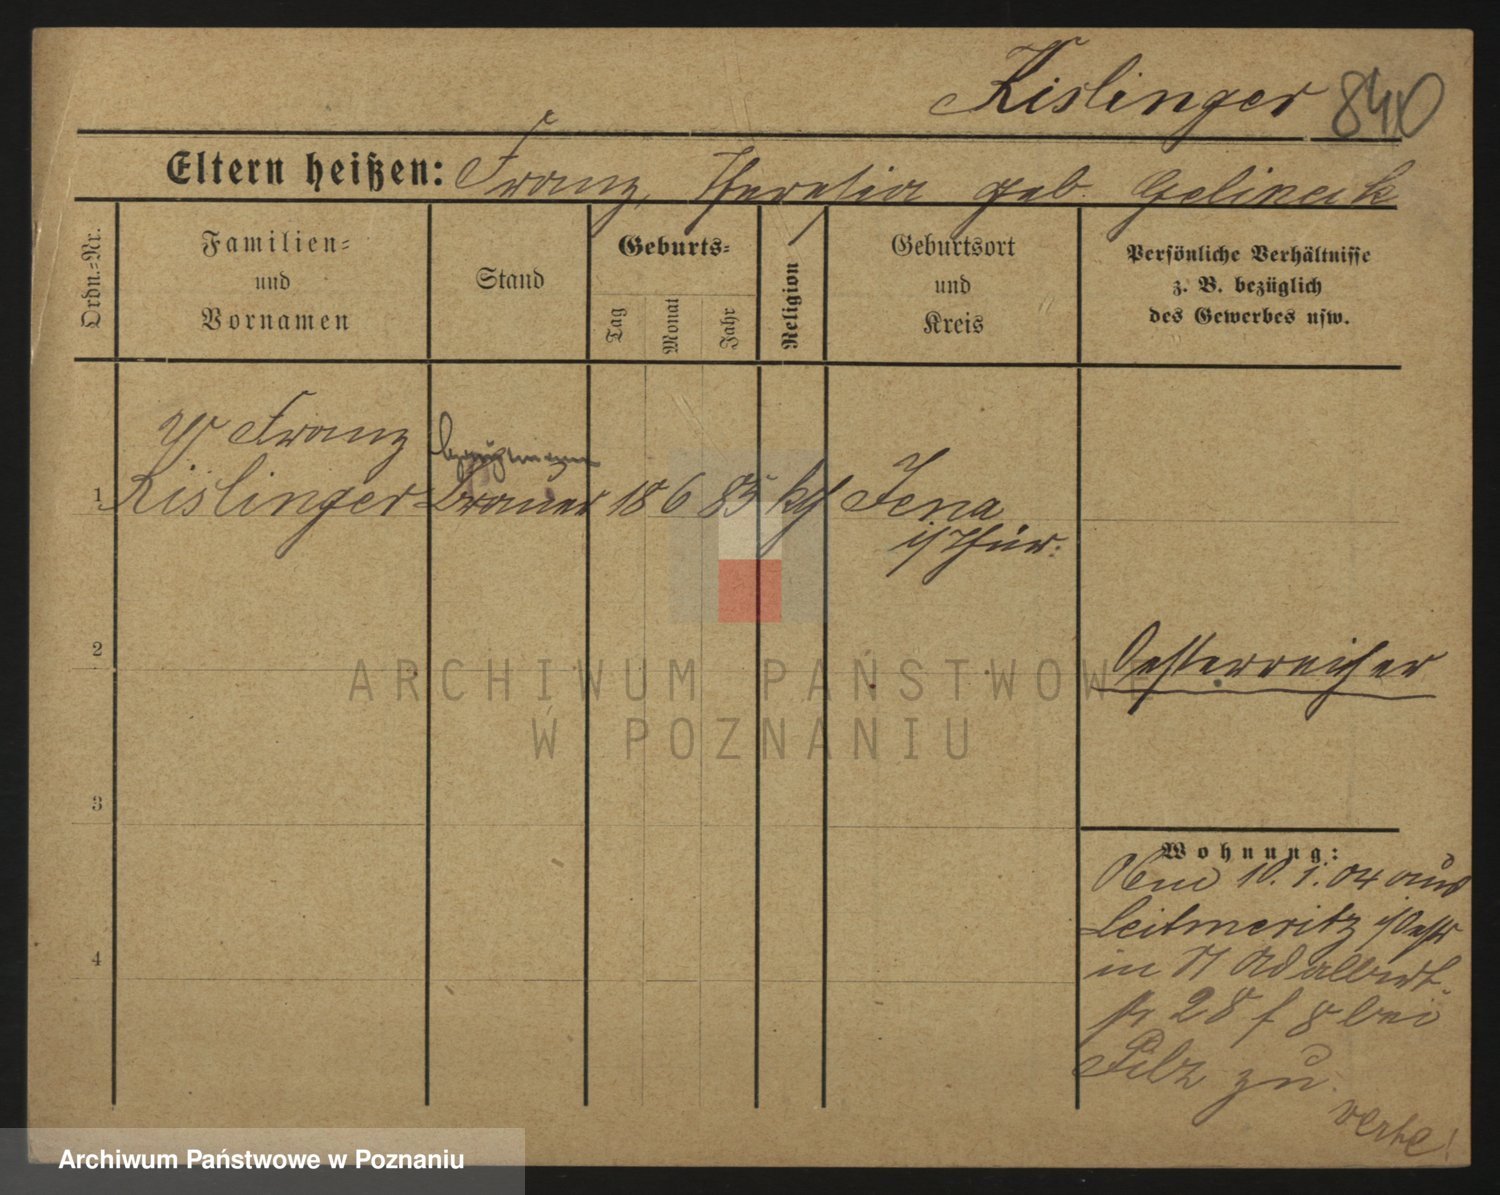 Kislinger 840
Eltern heißen: Franz, Theresia geb. Gelineck
Ordn.=Nr.
Familien=
und
Vornamen
Stand
Geburts=
Tag
Monat
Jahr
Religion
Geburtsort
und
Kreis
Persönliche Verhältnisse
z. B. bezüglich
des Gewerbes usw.
Franz
1 Kislinger Brauer 18 6 85 kth Jena
i/Thür:
2
Oesterreicher
3
Wohnung:
10. 1. 04 aus
Leitmeritz i/Oestr
in St Adalbert-
str 28 f 8 bei
Pilz zu.
4
verte!
ARCHIWUM PAŃSTWOWE
W POZNANIU
Archiwum Państwowe w Poznaniu